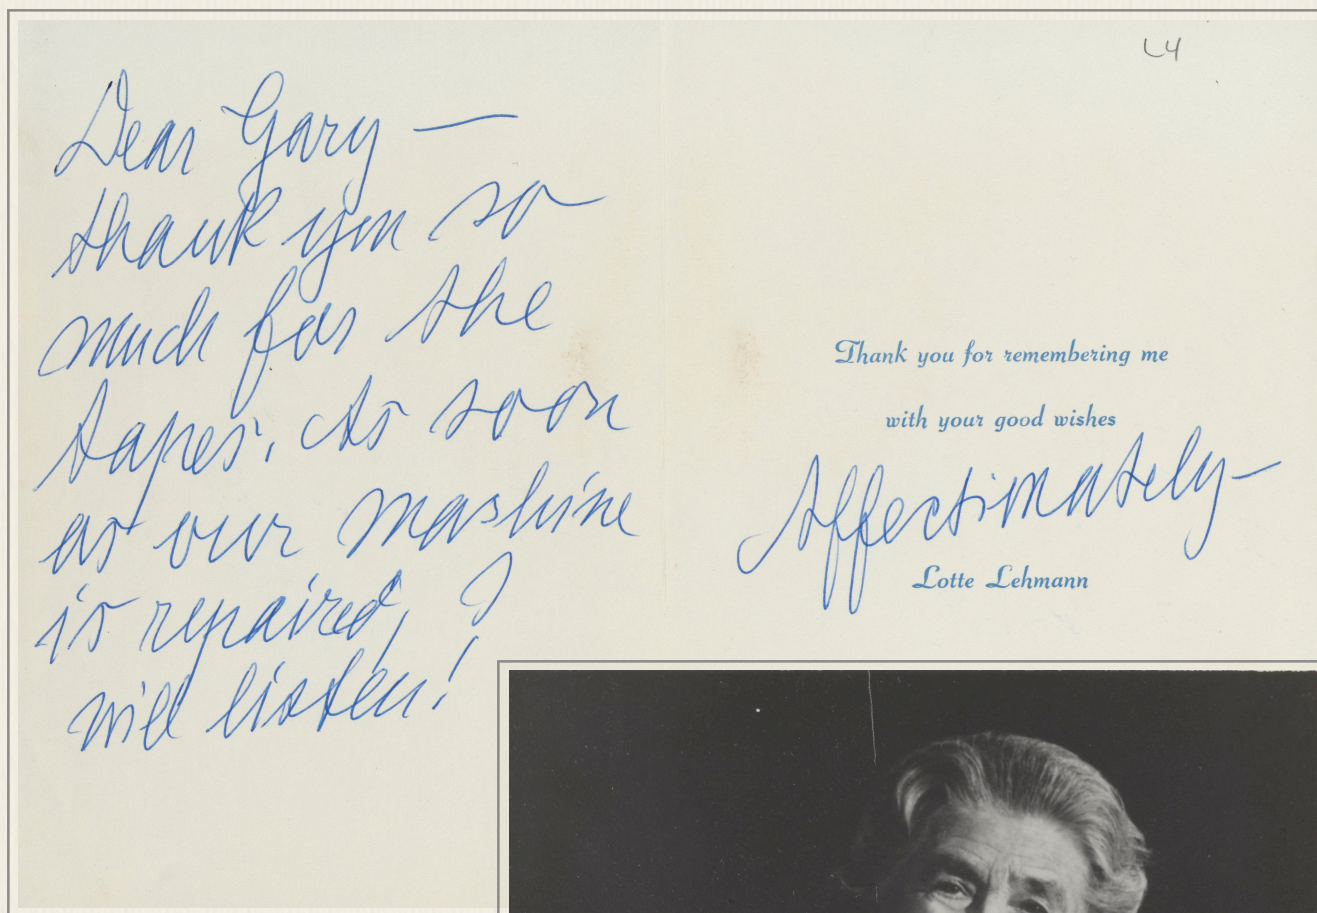 Dear Gary —
thank you so
much for the
tapes. As soon
as our mashine
is repaired, I
will listen!
L4
Thank you for remembering me
with your good wishes
Affectionately—
Lotte Lehmann